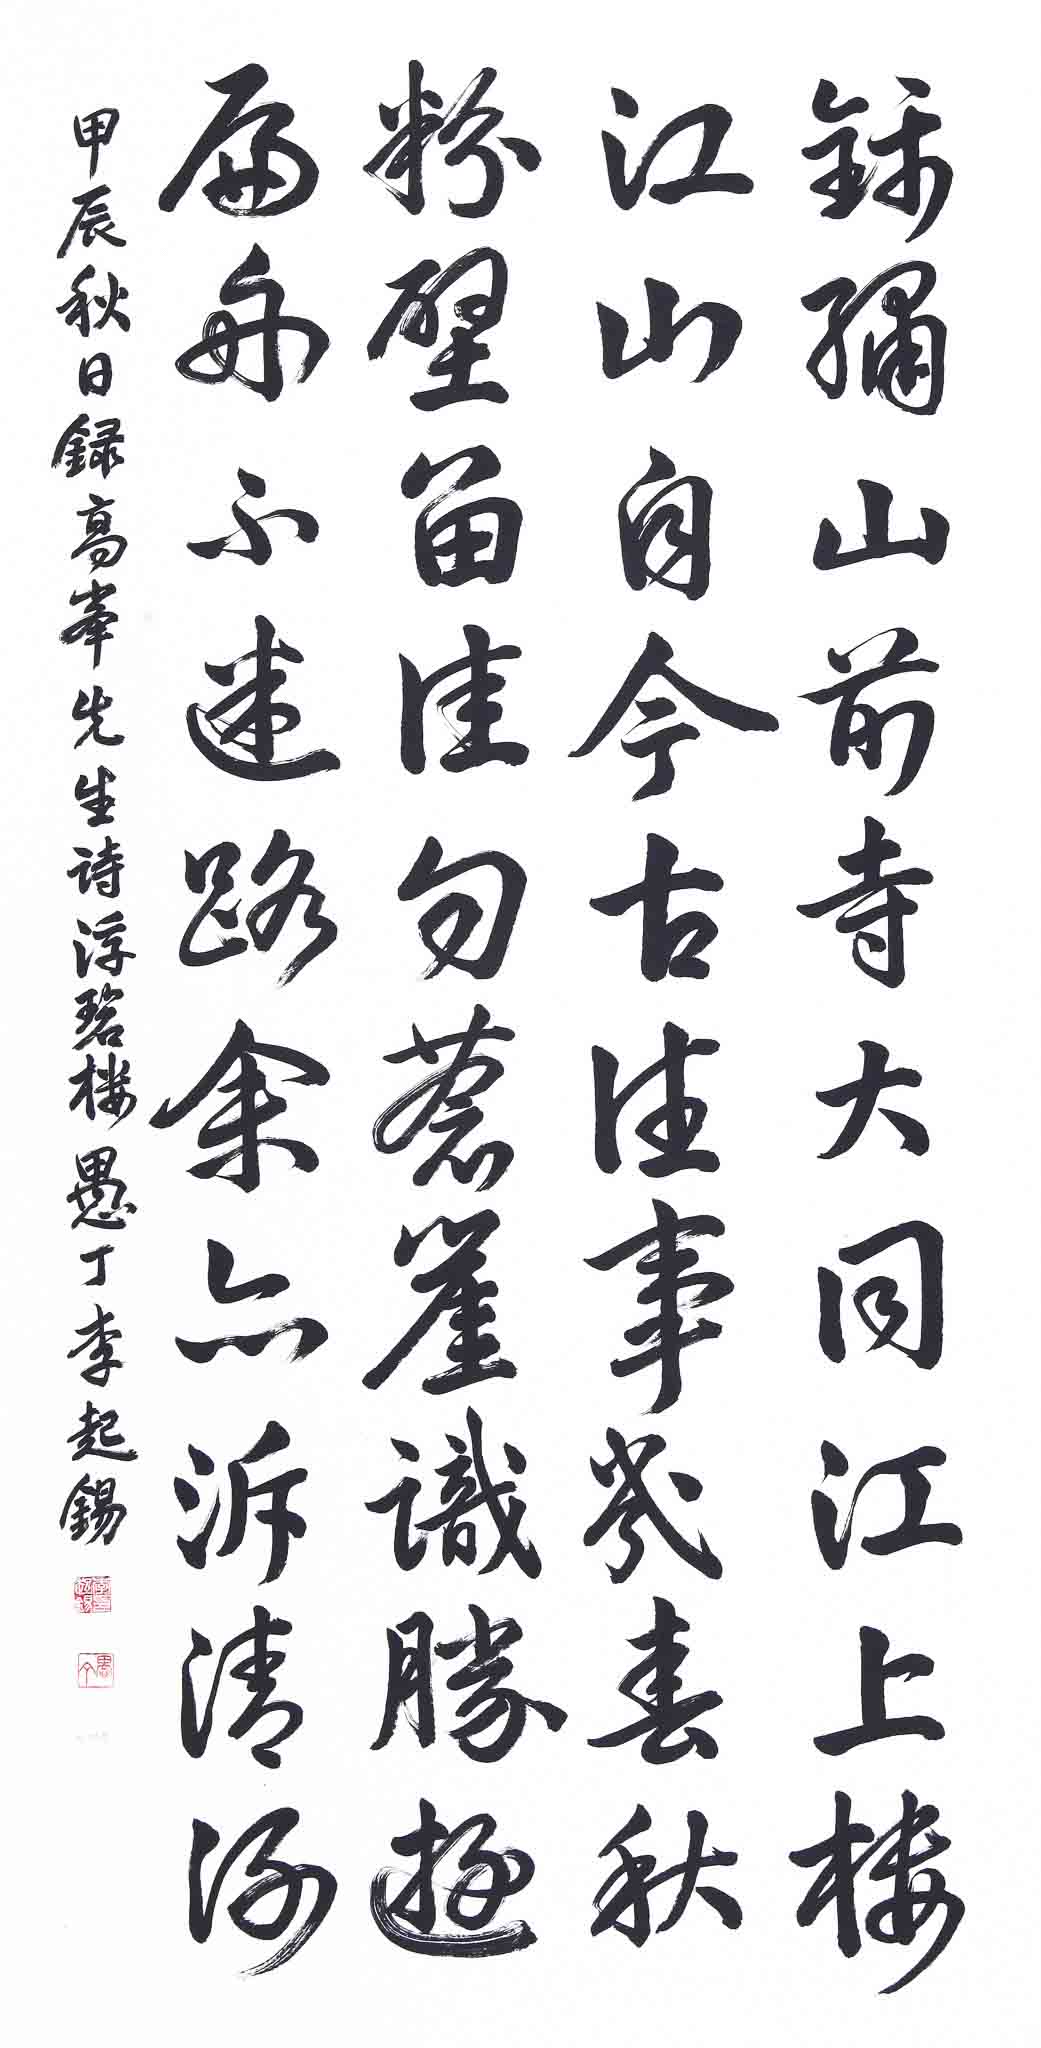 錦繡山前寺大同江上樓
江山自今古往事幾春秋
粉壁留佳句蒼崖識勝遊
扁舟不迷路余亦泝清流
甲辰秋日録高峯先生詩浮碧樓 愚丁李起錫